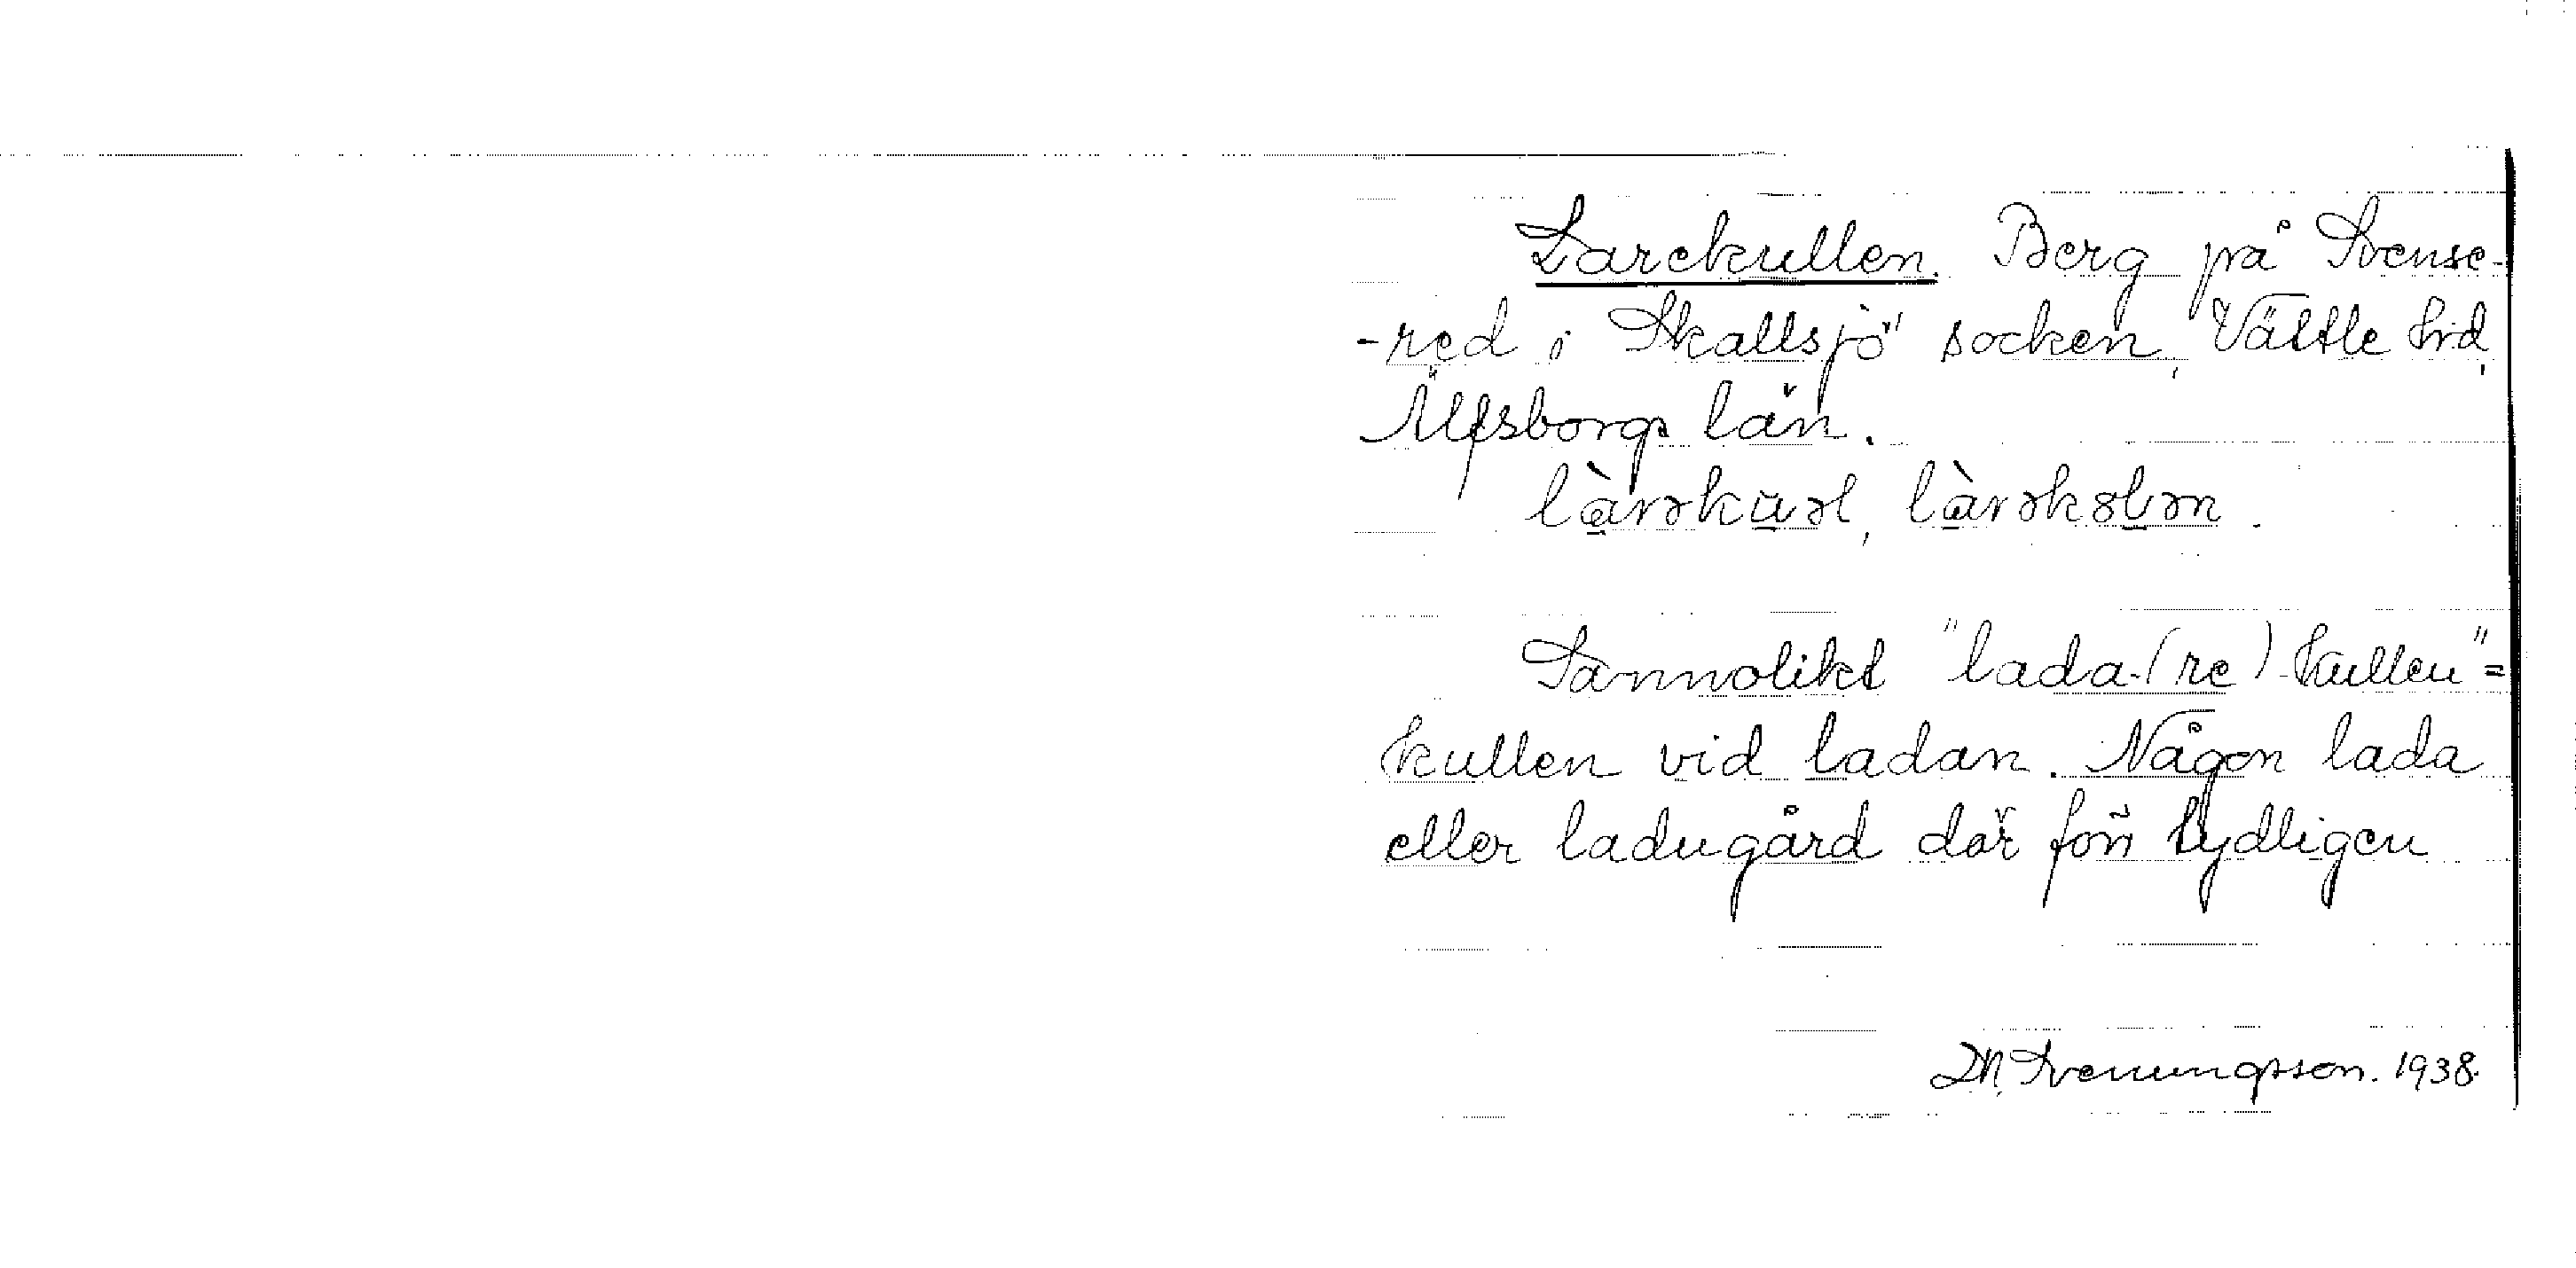 Larekullen. Berg på Svense-
-red i Skallsjö socken, Vättle hd,
Älfsborgs län.
Sannolikt "lada-(re)-kullen" =
kullen vid ladan. Någon lada
eller ladugård där förr tydligen
Svenungsson. 1938.